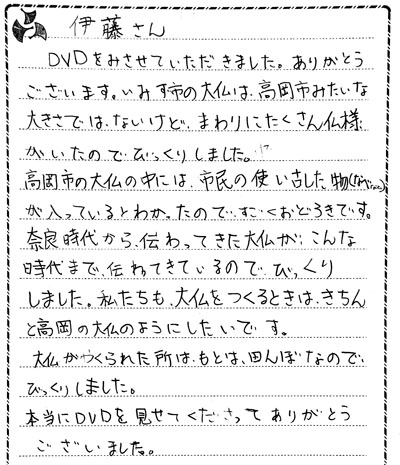 伊藤さん
DVDをみさせていただきました。ありがとう
ございます。いみず市の大仏は、高岡市みたいな
大きさではないけど、まわりにたくさん仏様
がいたのでびっくりしました。
高岡市の大仏の中には、市民の使い古した物
が入っているとわかったので、すごくおどろきです。
奈良時代から、伝わってきた大仏が、こんな
時代まで、伝わってきているので、びっくり
しました。私たちも、大仏をつくるときは、きちん
と高岡の大仏のようにしたいです。
大仏がつくられた所は、もとは、田んぼなので、
びっくりしました。
本当にDVDを見せてくださってありがとう
ございました。